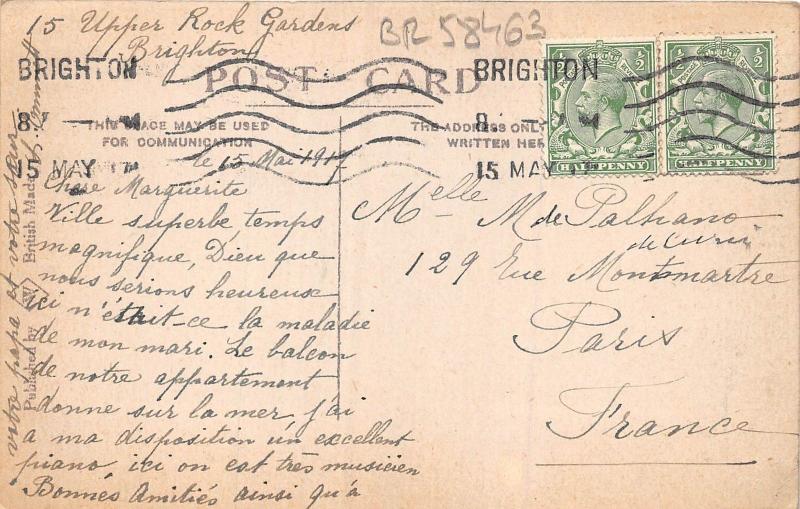 15 Upper Rock Gardens
Brighton
BR 58463
BRIGHTON
8
15 MAY
BRIGHTON
8
15 MAY
POST CARD
THIS SPACE MAY BE USED
FOR COMMUNICATION
THE ADDRESS ONLY
WRITTEN HER
HALFPENNY
HALFPENNY
le 15 Mai 1917
Chère Marguerite
Ville superbe, temps
magnifique, Dieu que
nous serions heureux
ici n'était-ce la maladie
de mon mari. Le balcon
de notre appartement
donne sur la mer j'ai
a ma disposition un excellent
piano ici on est très musicien
Bonnes Amitiés ainsi qu'à
votre papa et votre
Published by
British Made
Melle M de Palhano
129 Rue Montmartre
Paris
France